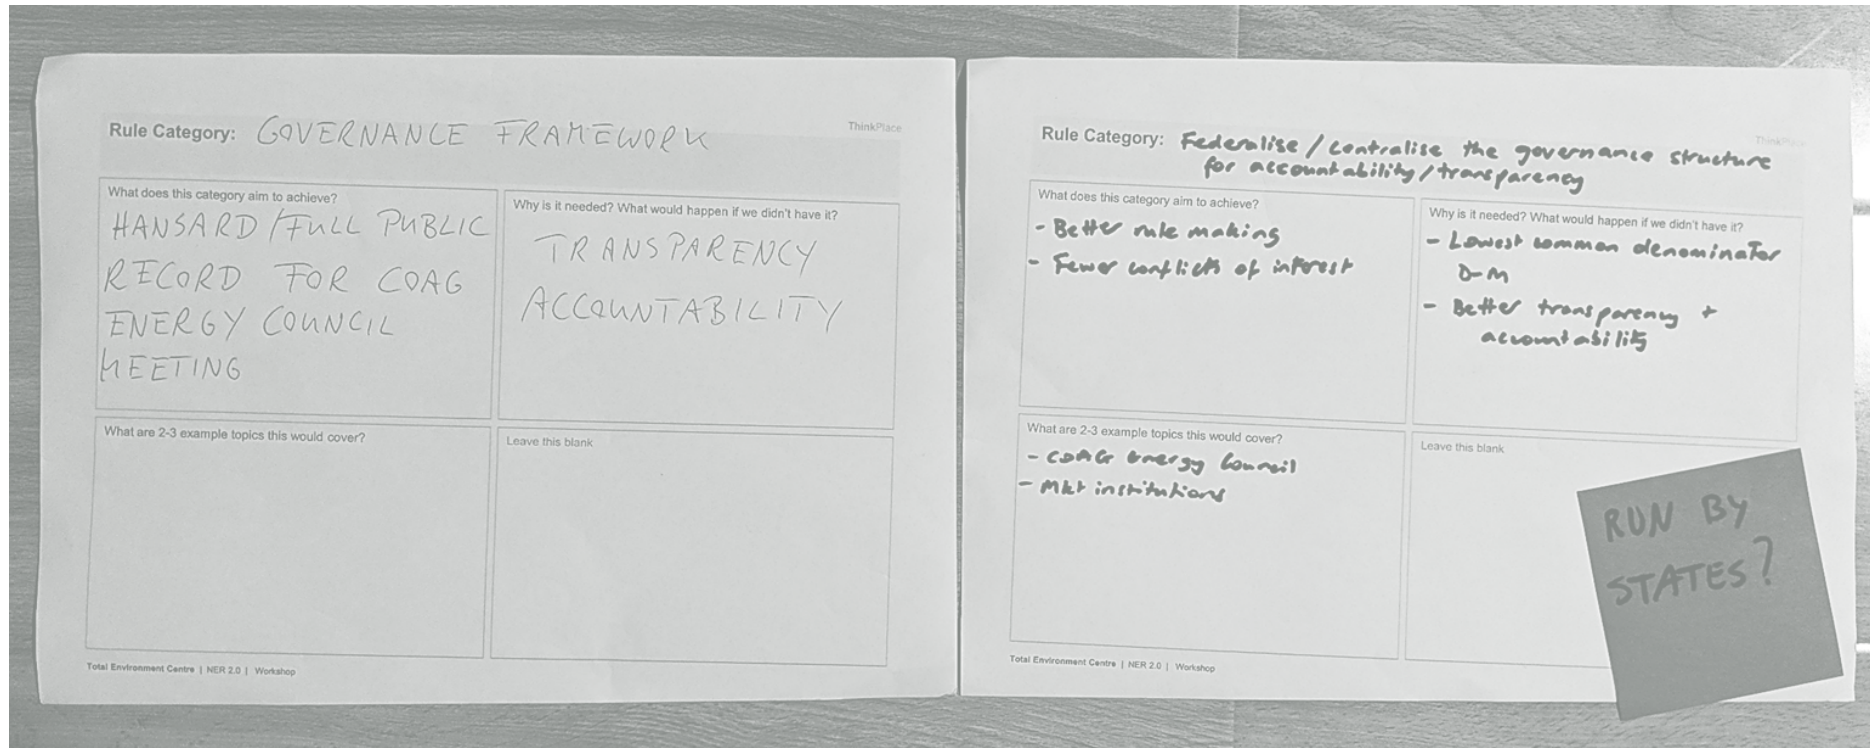 Rule Category: GOVERNANCE FRAMEWORK
ThinkPlace
What does this category aim to achieve?
HANSARD/FULL PUBLIC
RECORD FOR COAG
ENERGY COUNCIL
MEETING
Why is it needed? What would happen if we didn't have it?
TRANSPARENCY
ACCOUNTABILITY
What are 2-3 example topics this would cover?
Leave this blank
Total Environment Centre | NER 2.0 | Workshop
Rule Category: Federalise/centralise the governance structure
for accountability/transparency
ThinkPlace
What does this category aim to achieve?
- Better rule making
- Fewer conflicts of interest
Why is it needed? What would happen if we didn't have it?
- Lowest common denominator
D-M
- Better transparency +
accountability
What are 2-3 example topics this would cover?
- COAG Energy Council
- Mkt institutions
Leave this blank
RUN BY
STATES?
Total Environment Centre | NER 2.0 | Workshop